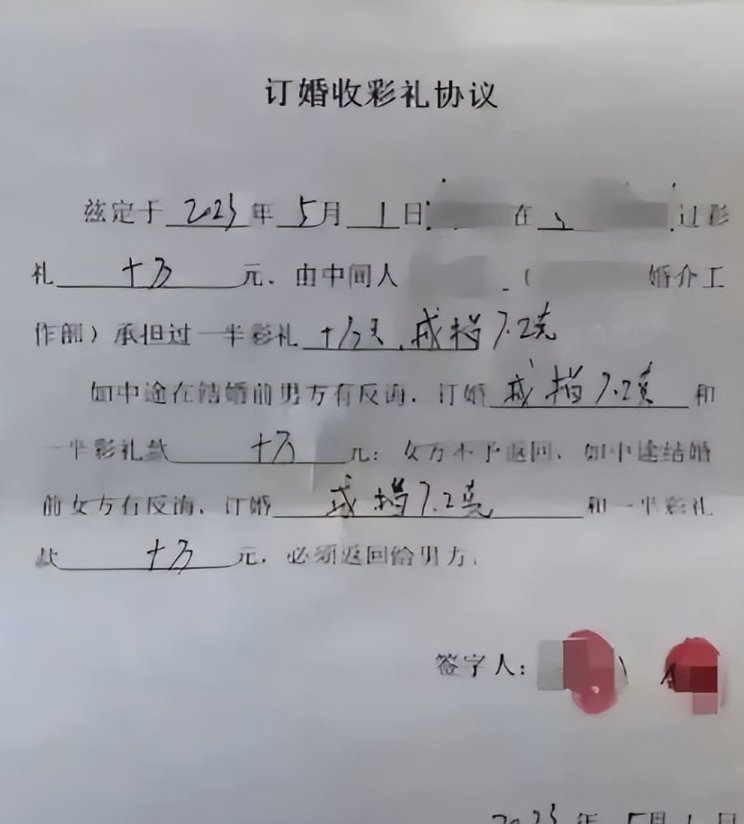 订婚收彩礼协议
兹定于 2023 年 5 月 1 日 在 过彩
礼 十万 元，由中间人 （ 婚介工
作部）承担过一半彩礼 十万元，戒指7.2克
如中途在结婚前男方有反悔，订婚 戒指7.2克 和
一半彩礼款 十万 元；女方不予返回、如中途结婚
前女方有反悔，订婚 戒指7.2克 和一半彩礼
款 十万 元，必须返回给男方。
签字人：
2023 年 5月 1 日